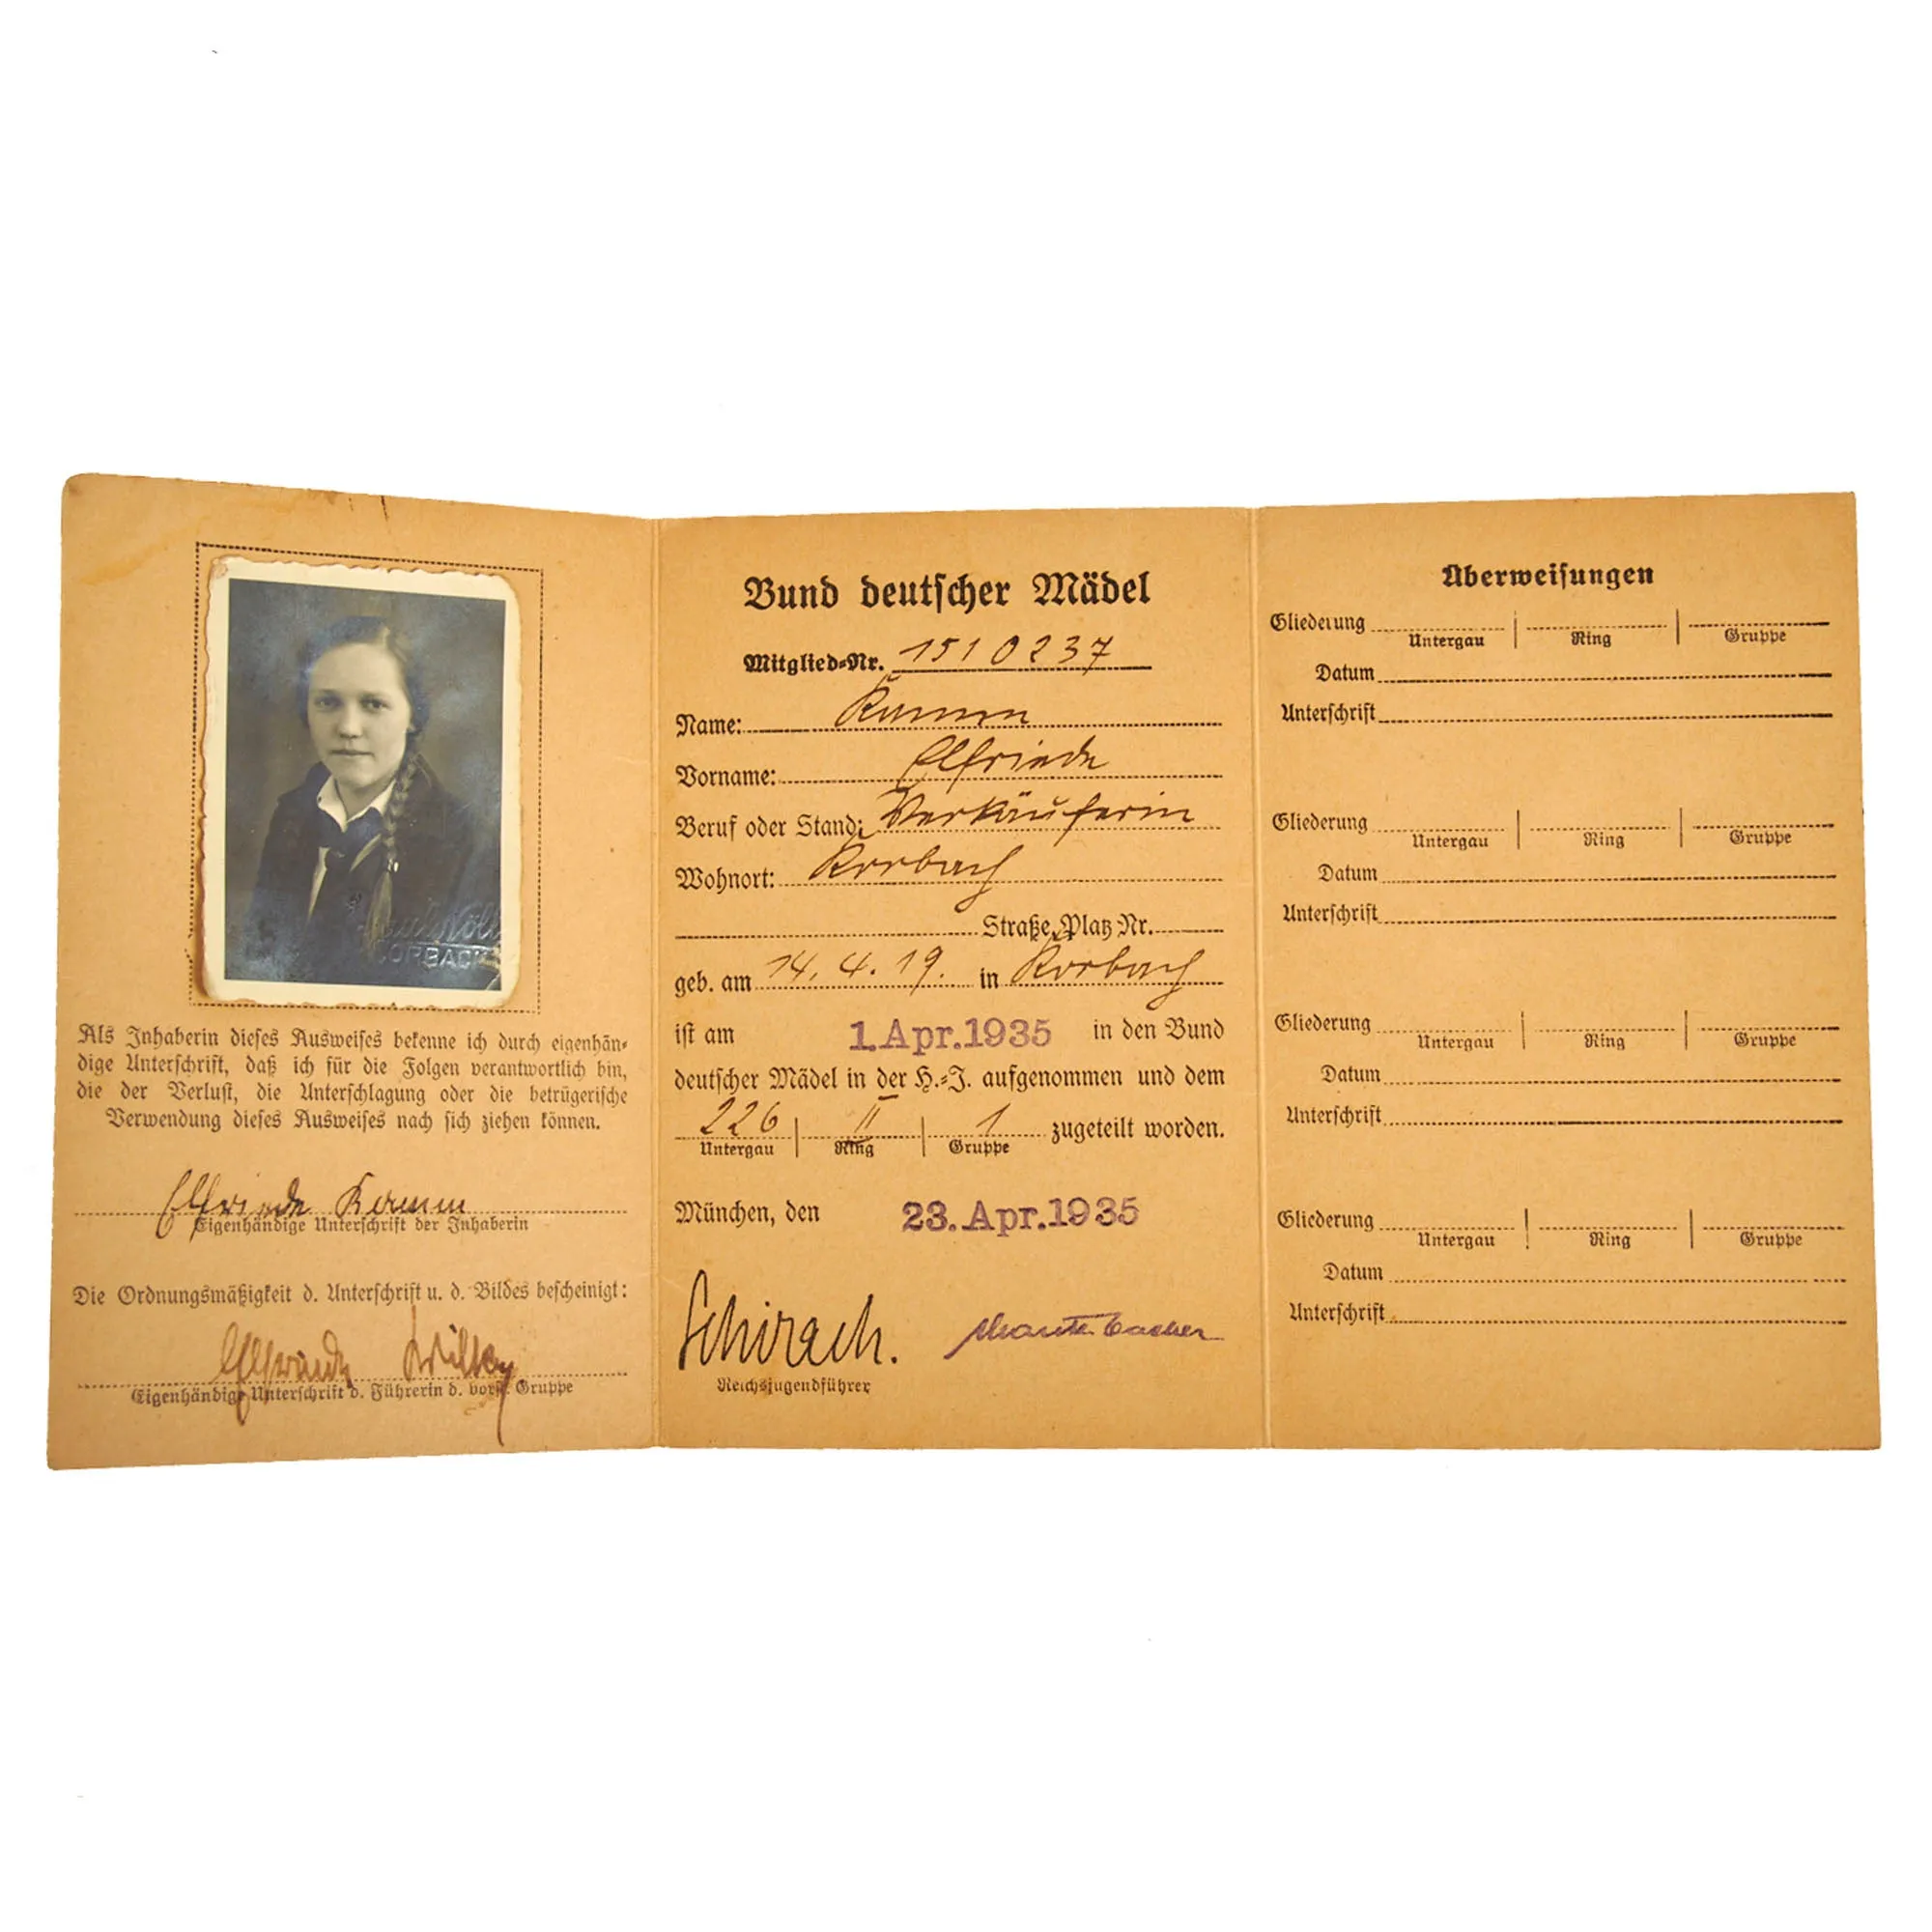 CORBACH
Als Inhaberin dieses Ausweises bekenne ich durch eigenhän-
dige Unterschrift, daß ich für die Folgen verantwortlich bin,
die der Verlust, die Unterschlagung oder die betrügerische
Verwendung dieses Ausweises nach sich ziehen können.
Elfriede Kamm
Eigenhändige Unterschrift der Inhaberin
Die Ordnungsmäßigkeit d. Unterschrift u. d. Bildes bescheinigt:
Elfriede
Eigenhändige Unterschrift d. Führerin d. vorst. Gruppe
Bund deutscher Mädel
Mitglied-Nr. 1510237
Name: Kamm
Vorname: Elfriede
Beruf oder Stand: Verkäuferin
Wohnort: Korbach
Straße, Platz Nr.
geb. am 14. 4. 19. in Korbach
ist am 1. Apr. 1935 in den Bund
deutscher Mädel in der H.-J. aufgenommen und dem
226 | II | 1 zugeteilt worden.
Untergau Ring Gruppe
München, den 23. Apr. 1935
Schirach.
Reichsjugendführer
Überweisungen
Gliederung
Untergau Ring Gruppe
Datum
Unterschrift
Gliederung
Untergau Ring Gruppe
Datum
Unterschrift
Gliederung
Untergau Ring Gruppe
Datum
Unterschrift
Gliederung
Untergau Ring Gruppe
Datum
Unterschrift